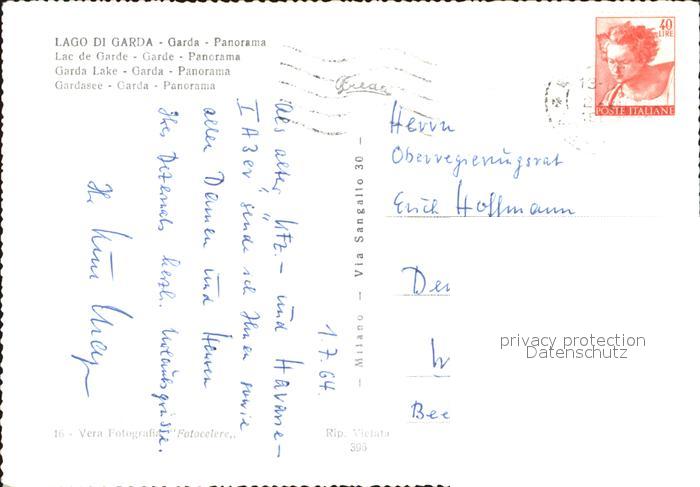 LAGO DI GARDA - Garda - Panorama
Lac de Garde - Garde - Panorama
Garda Lake - Garda - Panorama
Gardasee - Garda - Panorama
40
LIRE
POSTE ITALIANE
13
1.7.64.
Als alter Kfz.- und Havarie-
sende ich Ihnen sowie
allen Damen und Herren
Ihres Dezernats herzl. Urlaubsgrüsse.
Ihr
Herrn
Oberregierungsrat
Erich Hoffmann
Bee
privacy protection
Datenschutz
- Milano - Via Sangallo 30 -
16 - Vera Fotografia "Fotocelere„
Rip. Vietata
396